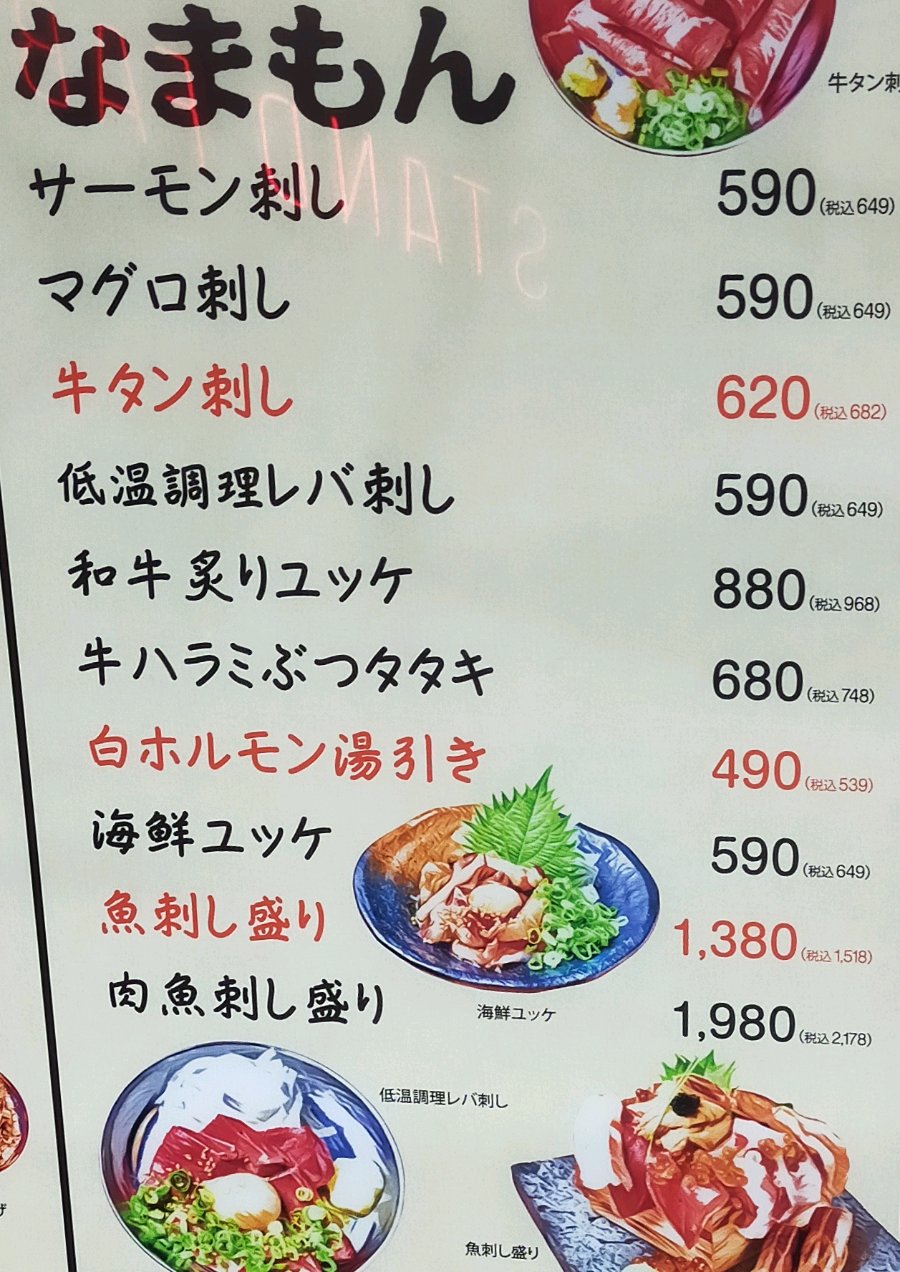 なまもん
牛タン刺
STAND
サーモン刺し 590(税込649)
マグロ刺し 590(税込649)
牛タン刺し 620(税込682)
低温調理レバ刺し 590(税込649)
和牛炙りユッケ 880(税込968)
牛ハラミぶつタタキ 680(税込748)
白ホルモン湯引き 490(税込539)
海鮮ユッケ 590(税込649)
魚刺し盛り 1,380(税込1,518)
肉魚刺し盛り 1,980(税込2,178)
海鮮ユッケ
低温調理レバ刺し
魚刺し盛り